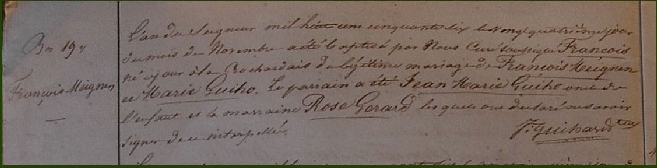 Bn 19e
François Meignen
L'an du Seigneur mil huit cent cinquante six le vingt quatrième jour
du mois de Novembre a été baptisé par Nous Curé soussigné François
né ce jour du légitime mariage de François Meignen
et Marie Guiho. Le parrain a été Jean Marie Guiho oncle de
l'enfant et la marraine Rose Gerard lesquels ont déclaré ne savoir
signer de ce interpellés.
Guihard